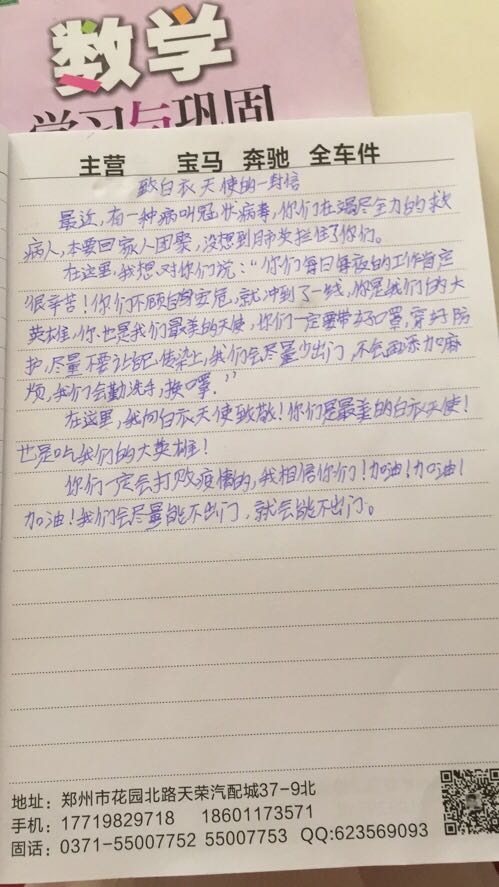 数学
学习与巩固
主营 宝马 奔驰 全车件
致白衣天使的一封信
最近,有一种病叫冠状病毒,你们在竭尽全力的救
病人,本要回家人团聚,没想到肺炎拦住了你们。
在这里,我想对你们说:“你们每日每夜的工作肯定
很辛苦!你们不顾自身安危,就冲到了一线,你是我们的大
英雄,你也是我们最美的天使,你们一定要带好口罩,穿好防
护,尽量不要让自己传染上,我们会尽量少出门,不会再添加麻
烦,我们会勤洗手,换口罩.”
在这里,我向白衣天使致敬!你们是最美的白衣天使!
也是我们的大英雄!
你们一定会打败疫情的,我相信你们!加油!加油!
加油!我们会尽量能不出门,就会能不出门。
地址:郑州市花园北路天荣汽配城37-9北
手机:17719829718 18601173571
固话:0371-55007752 55007753 QQ:623569093